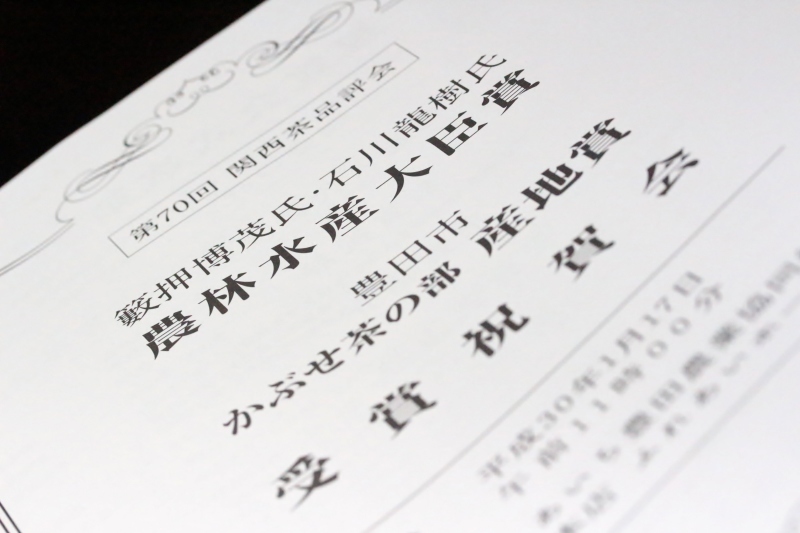 第70回 関西茶品評会
籔押博茂氏・石川龍樹氏
農林水産大臣賞
豊田市
かぶせ茶の部 産地賞
受賞祝賀会
平成30年1月17日
午前11時00分
あいち豊田農業協同
本店 ふれあい